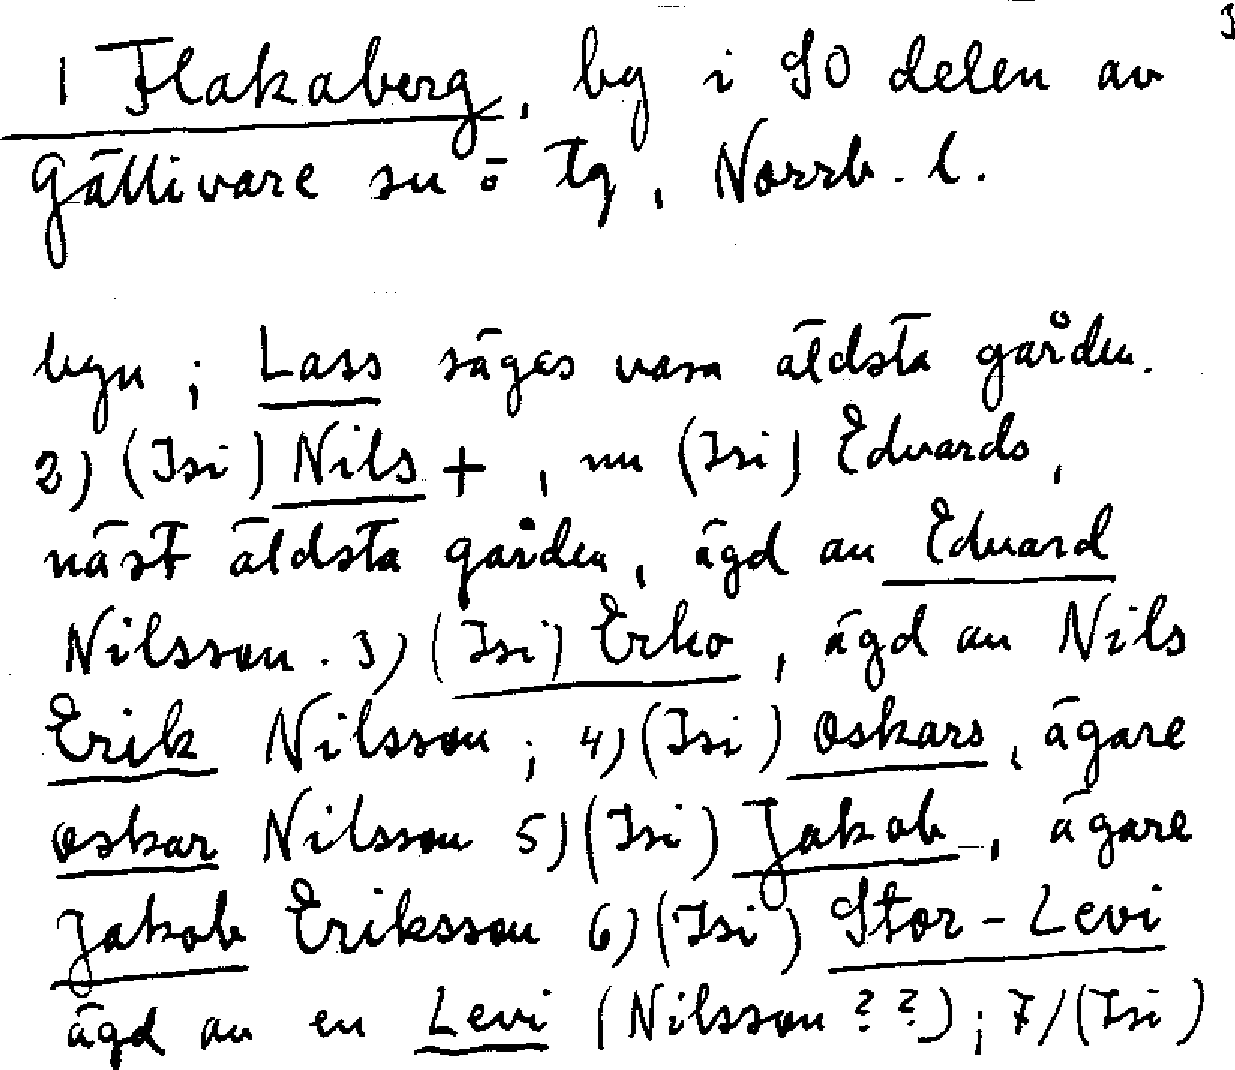 3
1 Flakaberg, by i SO delen av
Gällivare sn o tg, Norrb. l.
byn; Lass säges vara äldsta gården.
2) (Isi) Nils +, nu (Isi) Edvards,
näst äldsta gården, ägd av Edvard
Nilsson. 3) (Isi) Erko, ägd av Nils
Erik Nilsson; 4) (Isi) Oskars, ägare
Oskar Nilsson 5) (Isi) Jakob, ägare
Jakob Eriksson 6) (Isi) Stor-Levi
ägd av en Levi (Nilsson ??); 7/ (Isi)